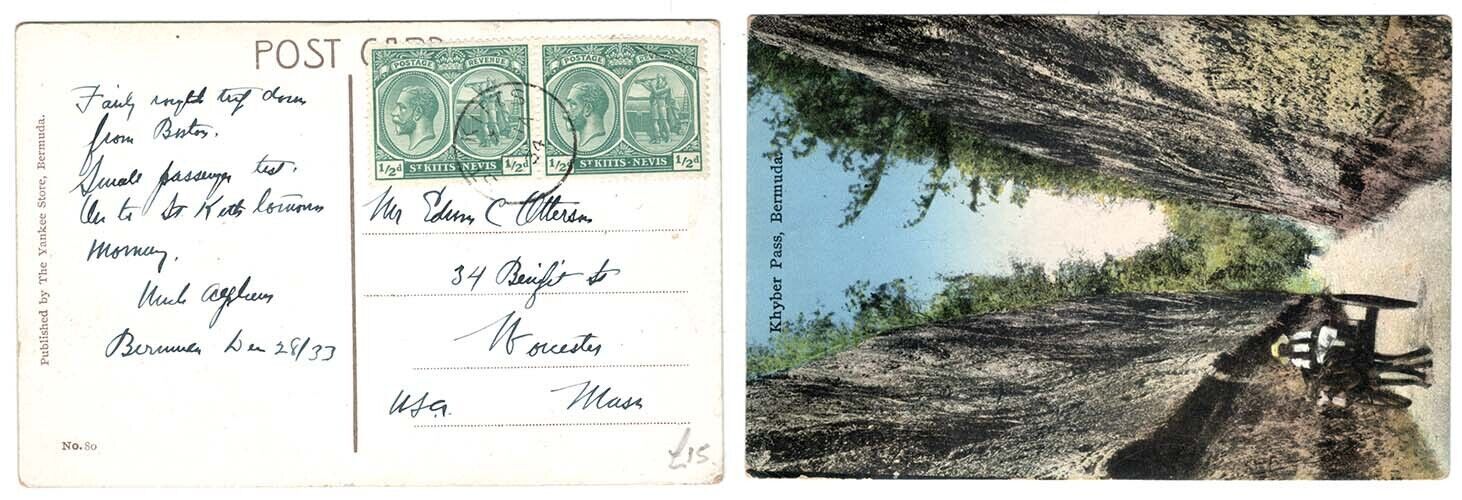 POST CARD
Fairly rough trip down
from Boston.
Small passenger list.
On to St Kitts tomorrow
Morning.
Uncle
Bermuda Dec 28/33
Published by The Yankee Store, Bermuda.
No. 80
POSTAGE REVENUE
1/2d ST KITTS-NEVIS 1/2d
POSTAGE REVENUE
1/2d ST KITTS-NEVIS 1/2d
ST KITTS
Mr Edwin C Otterson
34 St
Worcester
Mass
USA.
£15
Khyber Pass, Bermuda.